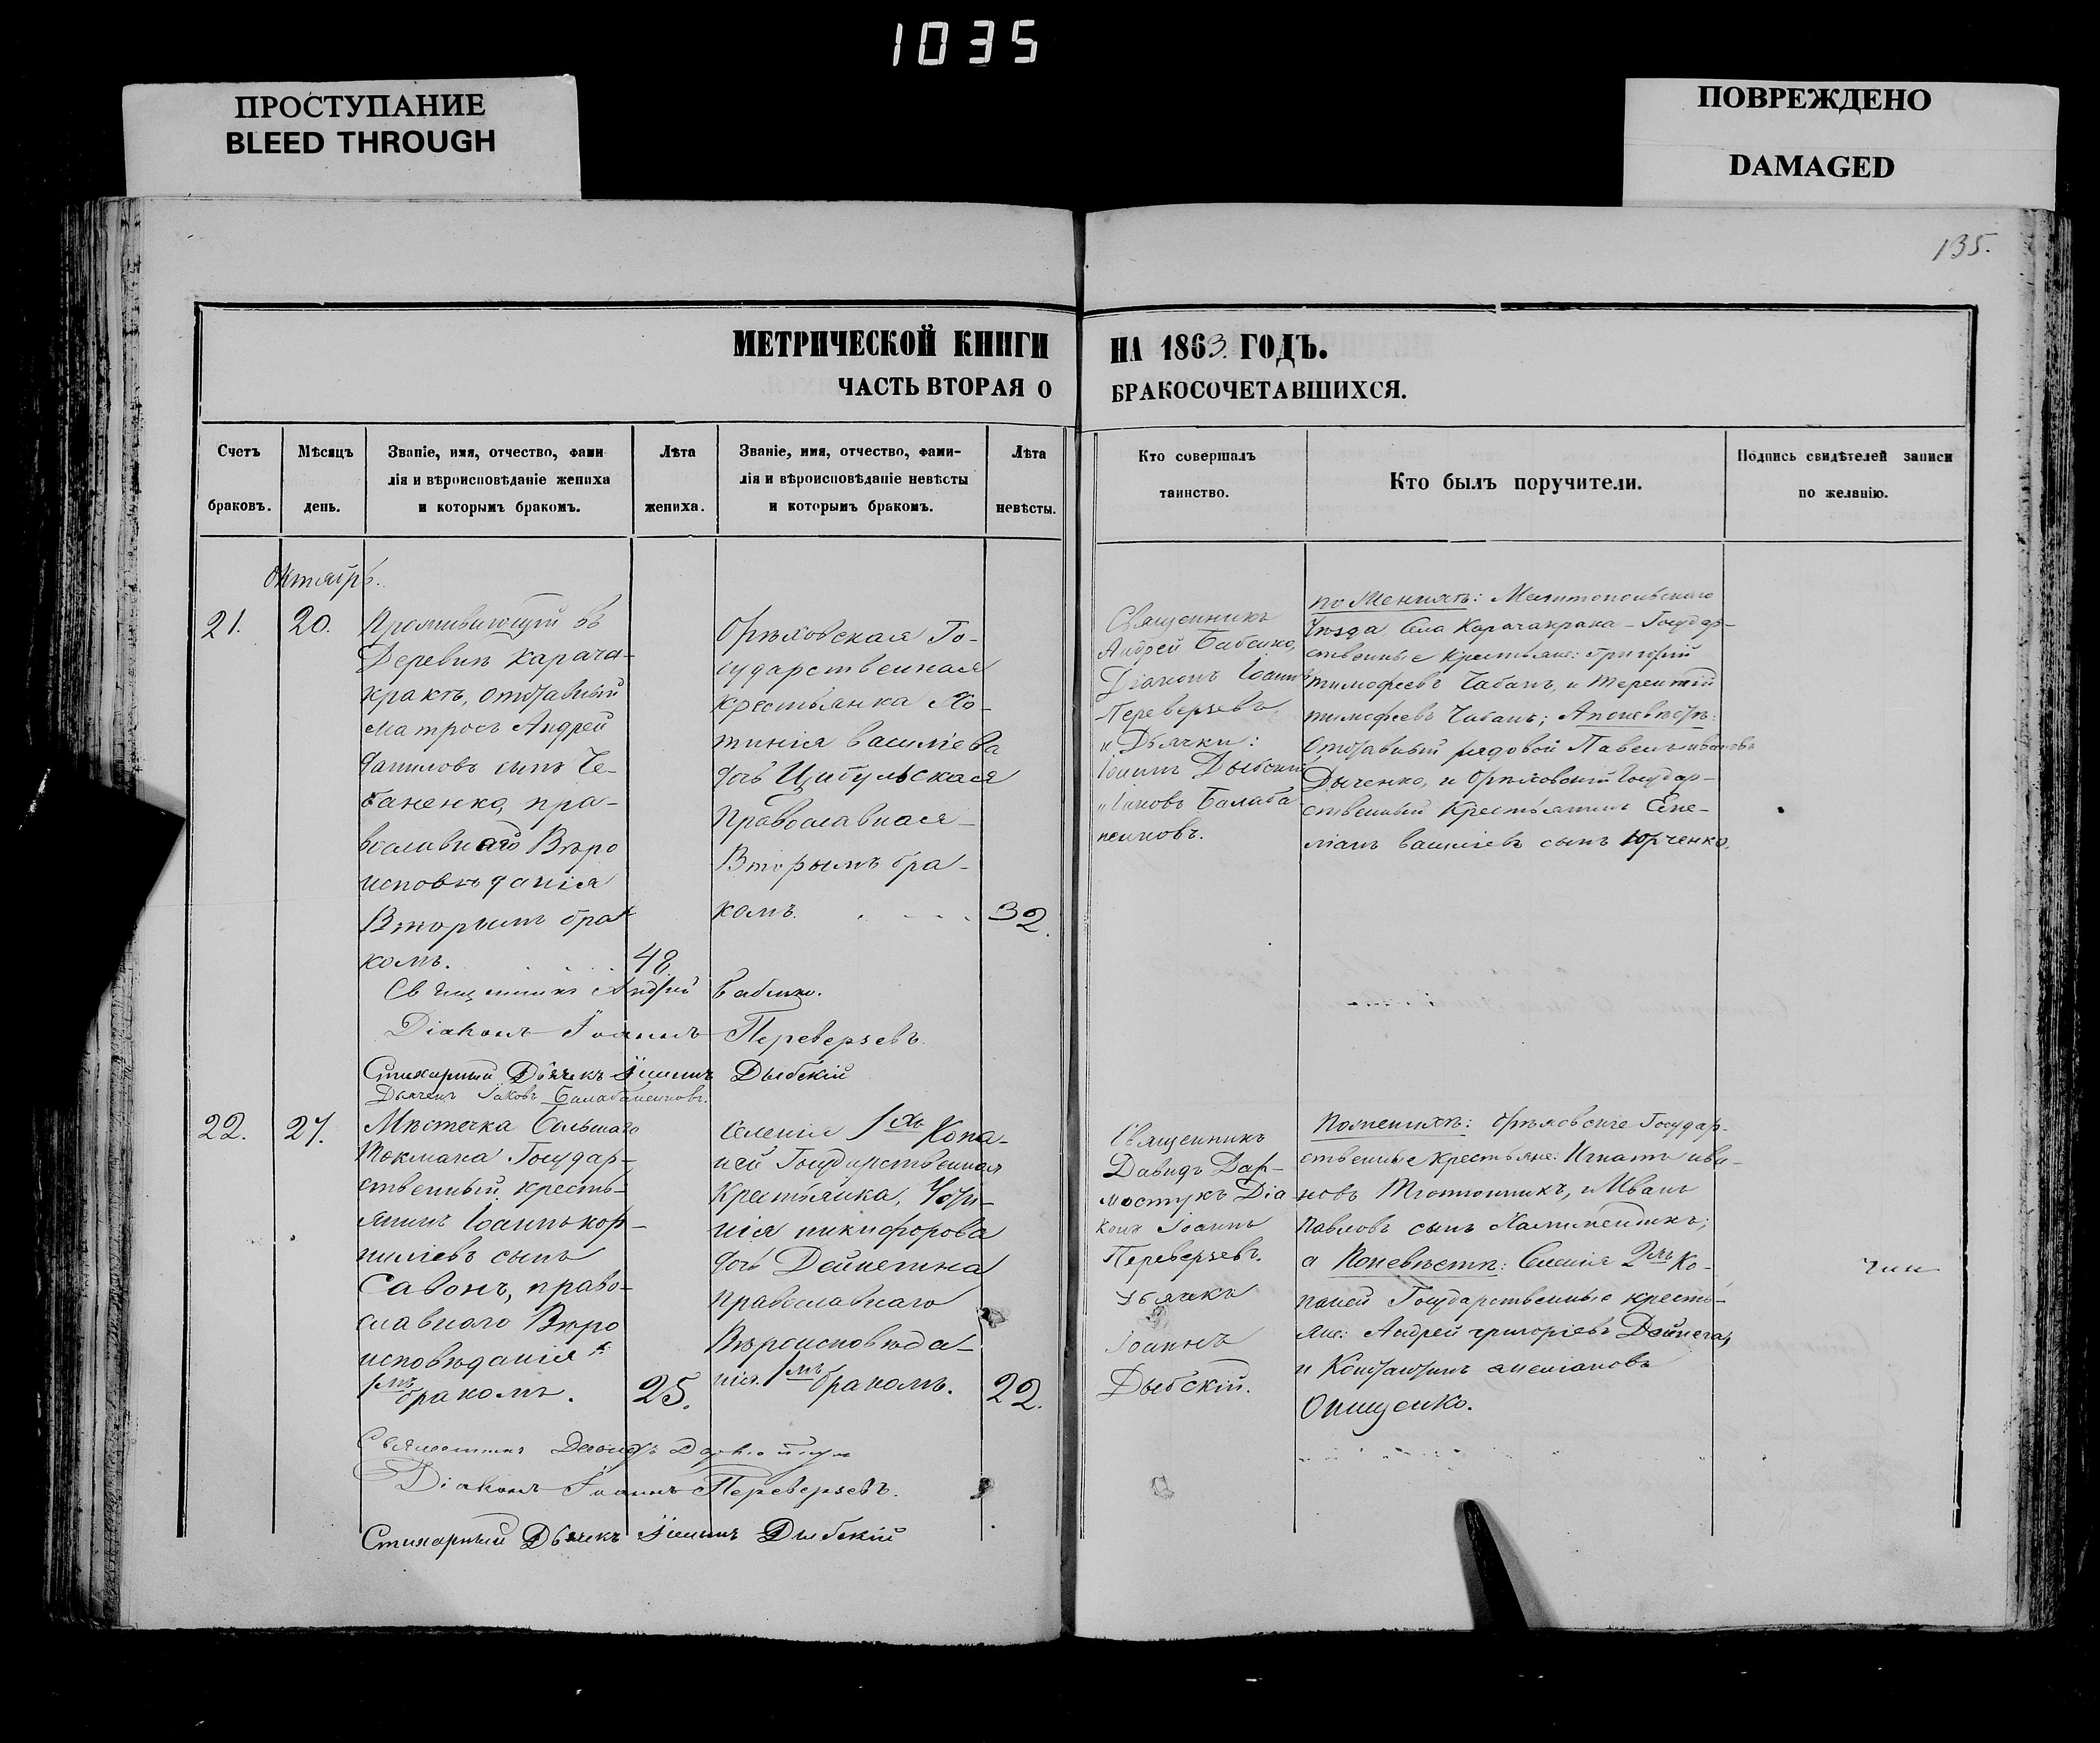 1035
ПРОСТУПАНИЕ
BLEED THROUGH
ПОВРЕЖДЕНО
DAMAGED
135.
МЕТРИЧЕСКОЙ КНИГИ НА 1863. ГОДЪ.
ЧАСТЬ ВТОРАЯ О БРАКОСОЧЕТАВШИХСЯ.
Счетъ
браковъ.
Мѣсяцъ
день.
Званіе, имя, отчество, фами
лія и вѣроисповѣданіе жениха
и которымъ бракомъ.
Лѣта
жениха.
Званіе, имя, отчество, фами-
лія и вѣроисповѣданіе невѣсты
и которымъ бракомъ.
Лѣта
невѣсты.
Кто совершалъ
таинство.
Кто былъ поручители.
Подпись свидѣтелей записи
по желанію.
Октябрь.
21.
20.
Проживающій въ
Деревнѣ Карача-
кракѣ, отставный
матросъ Андрей
Даниловъ сынъ Че-
баненко, пра-
вославнаго Вѣро
исповѣданія
Вторымъ бра-
комъ.
48.
Орѣховская Го-
сударственная
Крестьянка Хо-
тинія Васильева
дочь Цибульская
Православная
Вторымъ бра-
комъ.
32.
Священникъ
Андрей Бабенко,
Діаконъ Іоаннъ
Переверзевъ
и Дьячки:
Іоаннъ Дыбскій
и Іаковъ Балаба
неиковъ.
по Женихѣ: Мелитопольскаго
Уѣзда Села Карачакрака Государ-
ственные Крестьяне: Григорій
Тимофеевъ Чабанъ, и Терентій
Тимофеевъ Чабанъ; А поневѣстѣ:
Отставный рядовой Павелъ Ивановъ
Дыченко, и Орѣховскій Государ-
ственный Крестьянинъ Еме-
ліанъ Васильевъ сынъ Юрченко.
Священникъ Андрей Бабенко.
Діаконъ Іоаннъ Переверзевъ.
Стихарный Дьячекъ Іоаннъ Дыбскій
Дьячекъ Іаковъ Балабанеиковъ.
22.
27.
Мѣстечка Большаго
Токмака Государ-
ственный кресть-
янинъ Іоаннъ Кор-
ниліевъ сынъ
Савонъ, право-
славнаго Вѣро
исповѣданія
1мъ бракомъ.
25.
Селенія 1хъ Копа-
ней Государственная
Крестьянка,
Никифорова
дочь Дейнегина
Православнаго
Вѣроисповѣда-
нія. 1мъ бракомъ.
22.
Священникъ
Давидъ Дар-
мостукъ Діа-
конъ Іоаннъ
Переверзевъ.
Дьячекъ
Іоаннъ
Дыбскій.
По женихѣ: Орѣховскіе Государ-
ственные крестьяне: Игнатъ Ива-
новъ Тютюнникъ, и Иванъ
Павловъ сынъ
а Поневѣстѣ: Селенія 2хъ Ко-
паней Государственные кресть-
яне: Андрей Григоріевъ Дейнега,
и Константинъ Емеліановъ
Онищенко.
Священникъ Давидъ
Діаконъ Іоаннъ Переверзевъ.
Стихарный Дьячекъ Іоаннъ Дыбскій